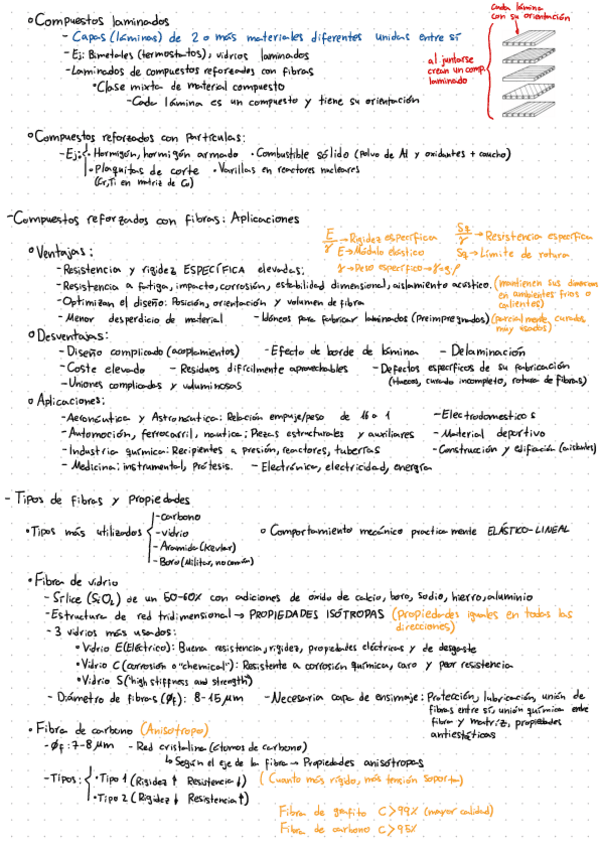 o Compuestos laminados
- Capas (láminas) de 2 o más materiales diferentes unidas entre sí
- Ej: Bimetales (termostatos), vidrios laminados
- Laminados de compuestos reforzados con fibras
• Clase mixta de material compuesto
- Cada lámina es un compuesto y tiene su orientación
Cada lámina
con su orientación
al juntarse
crean un comp.
laminado
o Compuestos reforzados con partículas:
- Ej: • Hormigón, hormigón armado • Combustible sólido (Polvo de Al y oxidantes + caucho)
• Plaquitas de corte • Varillas en reactores nucleares
(Cr,Ti en matriz de Co)
- Compuestos reforzados con fibras: Aplicaciones
E/γ → Rigidez específica
E → Módulo elástico
γ → Peso específico → γ=g·ρ
→ Resistencia específica
→ Límite de rotura
o Ventajas:
- Resistencia y rigidez ESPECÍFICA elevadas;
- Resistencia a fatiga, impacto, corrosión, estabilidad dimensional, aislamiento acústico. (mantienen sus dimension
en ambientes fríos o
calientes)
- Optimizan el diseño: Posición, orientación y volumen de fibra
- Menor desperdicio de material - Idóneos para fabricar laminados (Preimpregnados) (parcialmente curados
muy usados)
o Desventajas:
- Diseño complicado (acoplamientos) - Efecto de borde de lámina - Delaminación
- Coste elevado - Residuos difícilmente aprovechables - Defectos específicos de su fabricación
(Huecos, curado incompleto, rotura de fibras)
- Uniones complicadas y voluminosas
o Aplicaciones:
- Aeronáutica y Astronáutica: Relación empuje/peso de 16 a 1 - Electrodomesticos
- Automoción, ferrocarril, nautica: Piezas estructurales y auxiliares - Material deportivo
- Industria química: Recipientes a presión, reactores, tuberías - Construcción y edificación (aislantes)
- Medicina: instrumental, Prótesis. - Electrónica, electricidad, energía
- Tipos de fibras y Propiedades
• Tipos más utilizados
- carbono
- vidrio
- Aramida (Kevlar)
- Boro (Militar, no común)
o Comportamiento mecánico practicamente ELÁSTICO-LINEAL
• Fibra de vidrio
- Sílice (SiO₂) de un 50-60% con adiciones de óxido de calcio, boro, sodio, hierro, aluminio
- Estructura de red tridimensional → PROPIEDADES ISÓTROPAS (Propiedades iguales en todas las
direcciones)
- 3 vidrios más usados:
• Vidrio E (Eléctrico): Buena resistencia, rigidez, propiedades eléctricas y de desgaste
• Vidrio C (corrosión o "chemical"): Resistente a corrosión química, caro y peor resistencia
• Vidrio S ("high stiffness and strength")
- Diámetro de fibras (ϕf): 8-15 μm - Necesaria capa de ensimaje: Protección, lubricación, unión de
fibras entre sí, unión química entre
fibra y matriz, propiedades
antiestáticas
• Fibra de carbono (Anisótropo)
- ϕf: 7-8 μm - Red cristalina (átomos de carbono)
↳ Según el eje de la fibra → Propiedades anisótropas
- Tipos: • Tipo 1 (Rigidez ↑ Resistencia ↓) (Cuanto más rígido, más tensión soporta)
• Tipo 2 (Rigidez ↓ Resistencia ↑)
Fibra de grafito C>99% (mayor calidad)
Fibra de carbono C>95%